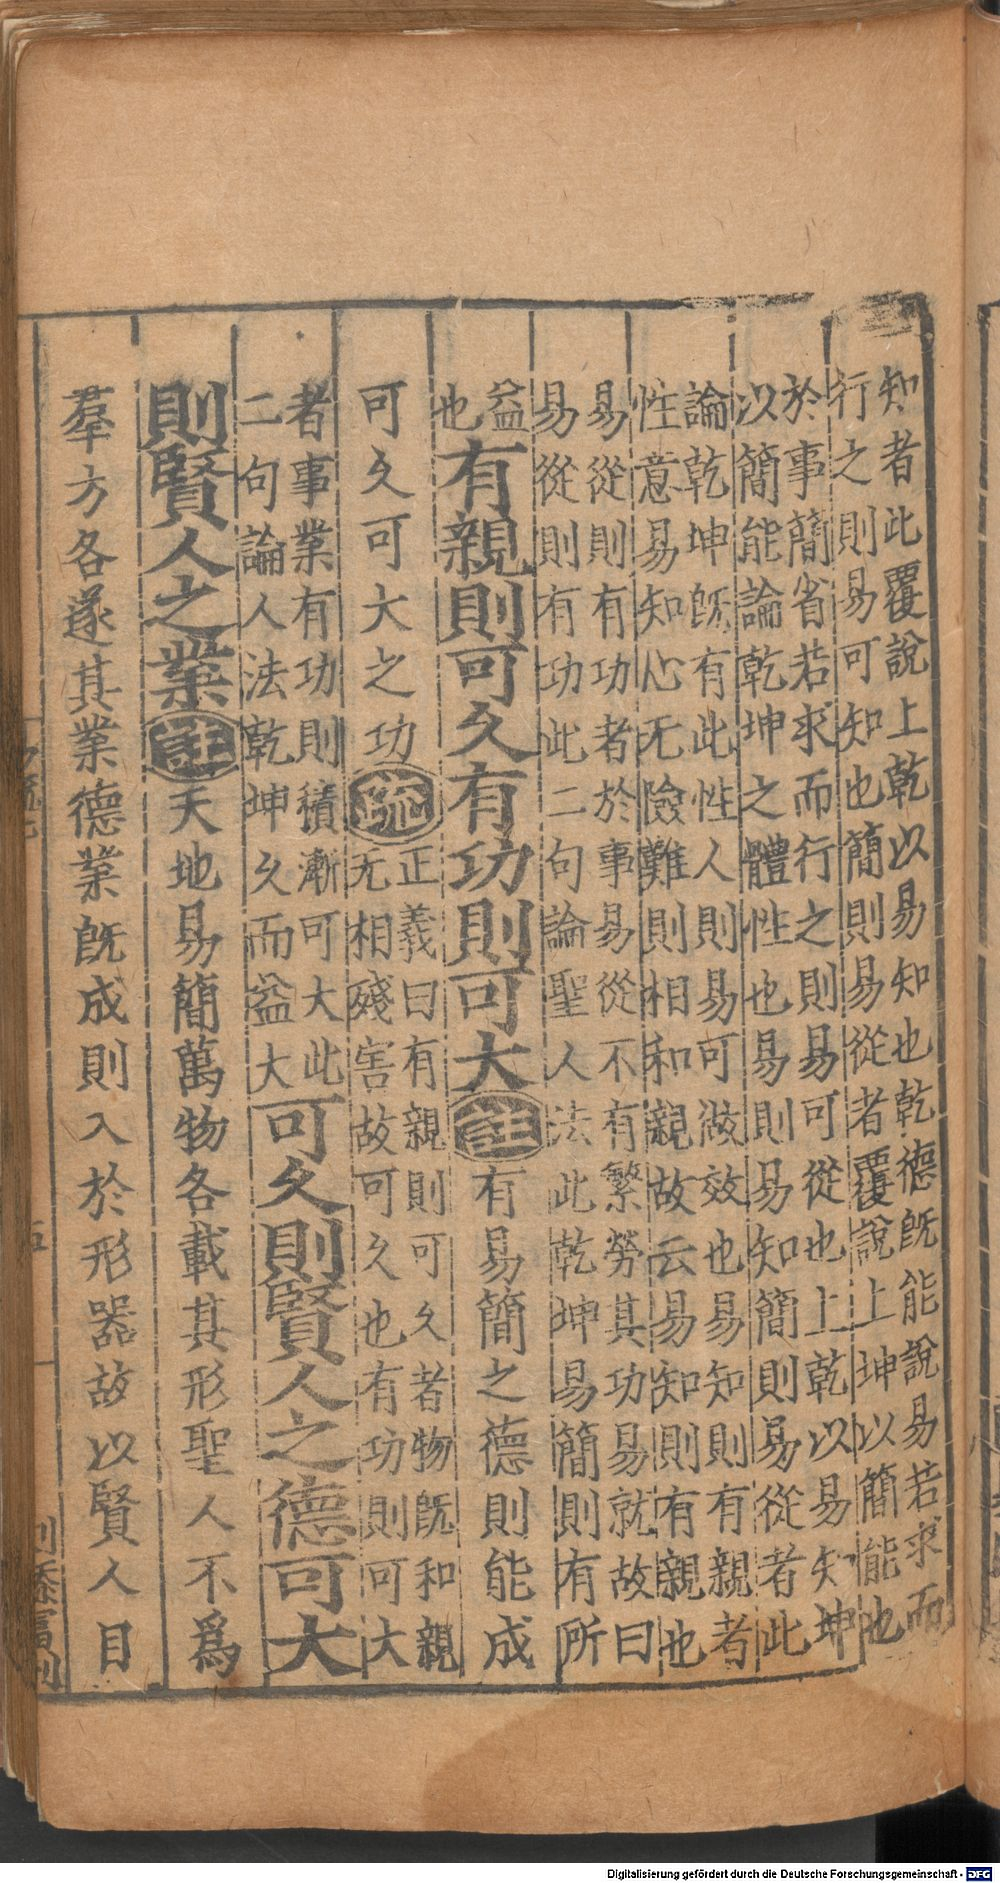 知者此覆說上乾以易知也乾德旣能說易若求而
行之則易可知也簡則易從者覆說上坤以簡能也
於事簡省若求而行之則易可從也上乾以易知坤
以簡能論乾坤之體性也易則易知簡則易從者此
論乾坤旣有此性人則易可倣效也易知則有親者
性意易知心无險難則相和親故云易知則有親也
易從則有功者於事易從不有繁勞其功易就故曰
易從則有功此二句論聖人法此乾坤易簡則有所
益
也
有親則可久有功則可大註有易簡之德則能成
可久可大之功疏
正義曰有親則可久者物旣和親
无相殘害故可久也有功則可大
者事業有功則積漸可大此
二句論人法乾坤久而益大
可久則賢人之德可大
則賢人之業註天地易簡萬物各載其形聖人不爲
羣方各遂其業德業旣成則入於形器故以賢人目
Digitalisierung gefördert durch die Deutsche Forschungsgemeinschaft - DFG